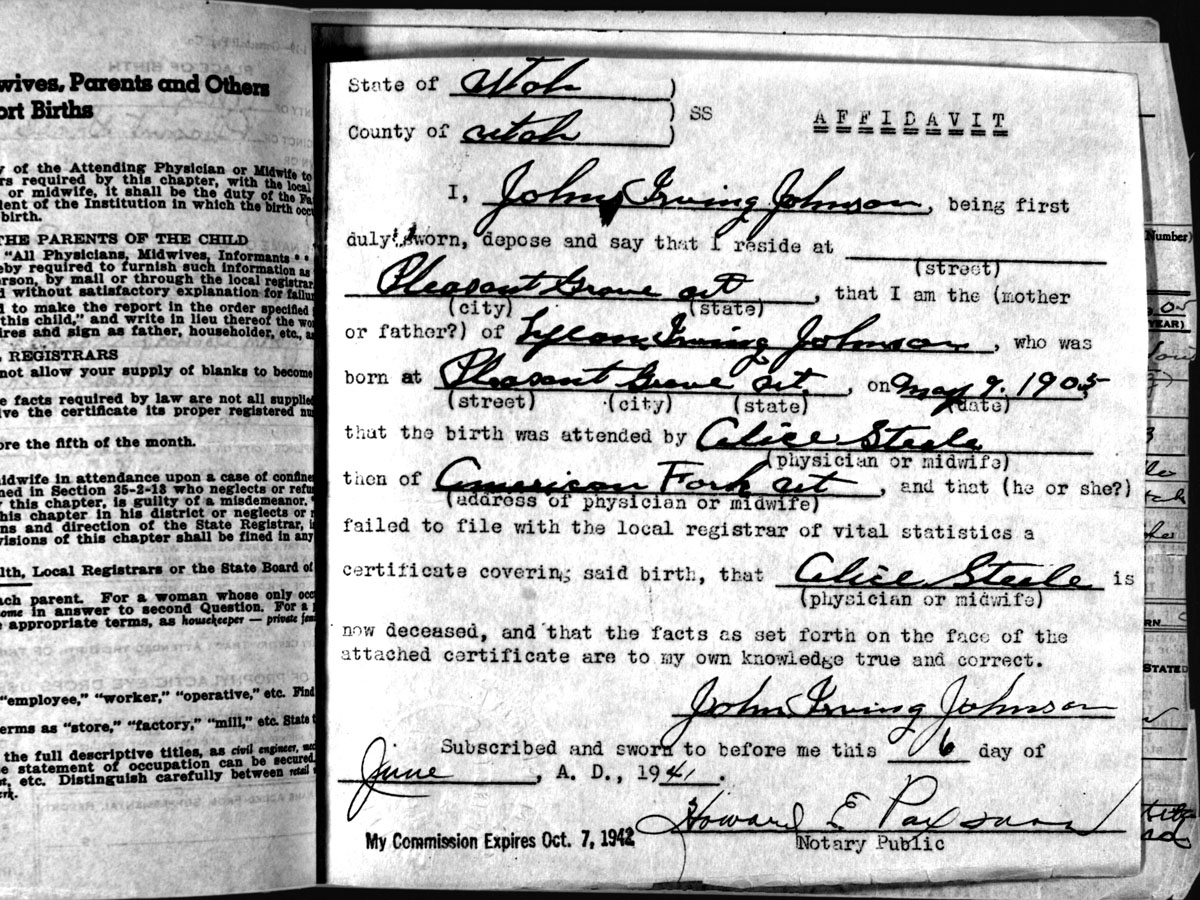 wives, Parents and Others
ort Births
y of the Attending Physician or Midwife to
rs required by this chapter, with the local
or midwife, it shall be the duty of the Fa
dent of the Institution in which the birth occ
birth.
THE PARENTS OF THE CHILD
"All Physicians, Midwives, Informants * *
eby required to furnish such information as
erson, by mail or through the local registrar
d without satisfactory explanation for failu
d to make the report in the order specified
this child," and write in lieu thereof the wo
ires and sign as father, householder, etc., a
REGISTRARS
not allow your supply of blanks to become
e facts required by law are not all supplied
ive the certificate its proper registered nu
ore the fifth of the month.
midwife in attendance upon a case of confine
ned in Section 35-2-13 who neglects or refu
y this chapter, is guilty of a misdemeanor.
this chapter in his district or neglects or
ns and direction of the State Registrar, i
visions of this chapter shall be fined in any
lth, Local Registrars or the State Board of
ach parent. For a woman whose only occ
ome in answer to second Question. For a
e appropriate terms, as housekeeper — private fam
"employee," "worker," "operative," etc. Find
erms as "store," "factory," "mill," etc. State t
the full descriptive titles, as civil engineer,
e statement of occupation can be secured.
etc. Distinguish carefully between retail
State of Utah )
) SS AFFIDAVIT
County of Utah )
I, John Irving Johnson, being first
duly sworn, depose and say that I reside at
(street)
Pleasant Grove Ut, that I am the (mother
(city) (state)
or father?) of Lycon Irving Johnson, who was
born at Pleasant Grove Ut., on May 9. 1905
(street) (city) (state) (date)
that the birth was attended by Alice Steele
(physician or midwife)
then of American Fork Ut, and that (he or she?)
(address of physician or midwife)
failed to file with the local registrar of vital statistics a
certificate covering said birth, that Alice Steele is
(physician or midwife)
now deceased, and that the facts as set forth on the face of the
attached certificate are to my own knowledge true and correct.
John Irving Johnson
Subscribed and sworn to before me this 6 day of
June, A. D., 1941.
Howard E Paxman
My Commission Expires Oct. 7, 1942
Notary Public
Number)
YEAR)
STATED